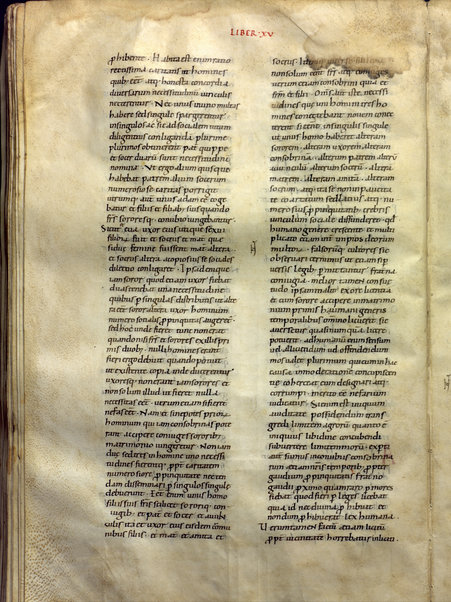 LIBER · XV
phibente · Habita est enim ratio
rectissima caritatis ut homines
quib; esset utilis atq; honesta concordia
diversarum necessitudinum vinculis
necterentur · Nec unus in uno multas
haberet sed singule spargerentur
in singulos ac sic ad socialem vitam
diligentius conligandam plurime
plurimos obtinerent pat̄ quippe
et socer duarū sunt necessitudinū
nomina · Ut ergo alium quisque
habeat patrem alium socerum
numerosius se caritas porrigit
utrumq; aut unus adam ēē coge
batur et filiis et filiab; suis quando
frs̄ sororesq; conubio iungebantur ·
Sic et eua uxor eius utriq; sexui
filiorū fuit et socrus et mat̄ que
si due femine fuissent mat̄ altera
et socrus altera copiosius se socialis
dilectio conligaret · Ipsa deniq;
iam soror quod etiam uxor fiebat
duas tenebat una necessitudines
quibus p singulas distributis ut alt̄
esset soror altera uxor hominum
numero socialis ppinquitas augeret̄ ·
Sed hoc unde fieret tunc non erat
quando nisi frs̄ et sorores ex illis pri
mis duob; nulli homines erant
fieri ergo debuit quando potuit
ut existente copia inde ducerentur
uxores que non erant iam sorores et
non solum illud ut fieret nulla
necessitas eēt verum etiam si fieret
nefas eēt · Nam si et nepotes primo
hominum qui iam consobrinas pote
rant accipere coniuges sororib;
matrimonio iungerent̄ · Non iam
due sed tres in homine uno necessi
tudines fierent que ppt̄ caritatem
numerosiore ppinquitate necten
dam disseminari p singulos singule
debuerunt · Esset enim unus homo
filiis suis frī scilicet sororiq; con
iugib; et pat̄ et socer et avunc
ulus ita et uxor eius eisdem cōmu
nibus filiis · et mat̄ et amita et
socrus ·
non solum eēnt frs̄ atq; coniuges
verum etiam consobrini quia et
frm̄ et filii · Omnes autē iste necessi
tudines que uni homini tres ho
mines conectebant novem conec
terent si essent in singulis singule
ut unus homo haberet alteram
sororem · alteram uxorem alteram
consobrinam · alterum patrem alterū
avunculum alterum socerū · alteram
matrem · alteram amitam · alteram
socrum · atq; ita se non in paucita
te coartatum sed latius atq; nu
merosius ppinquitatib; crebris
vinculum sociale diffunderet · qđ
humano genere crescente et multi
plicato etiam int̄ impios deorum
multorū · falsorūq; cultores sic
observari cernimus ut etiam si p
versis legib; pmittantur fraterna
coniugia · melior tamen consue
tudo ipsam malit exhorrere licentiam
et cum sorores accipere in matrimo
nium primis humani generis
temporalibus om̄nino licuerit sic
aversetur quasi numq̄ licere
potuerit · ad humanū enim sensum
vel alliciendum vel offendendum
mos valet plurimum qui cum in hac
causa immoderationem concupiscen
tie coherceat eum designari atq;
corrumpi · merito eē nefarium
iudicatur · Si enim est iniquum
aviditate possidendi trans
gredi limitem agrorū quanto ē
iniquius libidine concumbendi
subvertere limitem morū · expti
aut sumus in conubiis consobrina
rum etiam nrīs temporib; ppt̄
gradum ppinquitatis frat̄no
gradui pximum quam raro p mores
fiebat quod fieri p leges licebat
quia id nec divina phibuit et
nondum phibuerat lex humana ·
Verumtamen factū etiam licitū
ppt̄ vicinitatē horrebatur illiciti